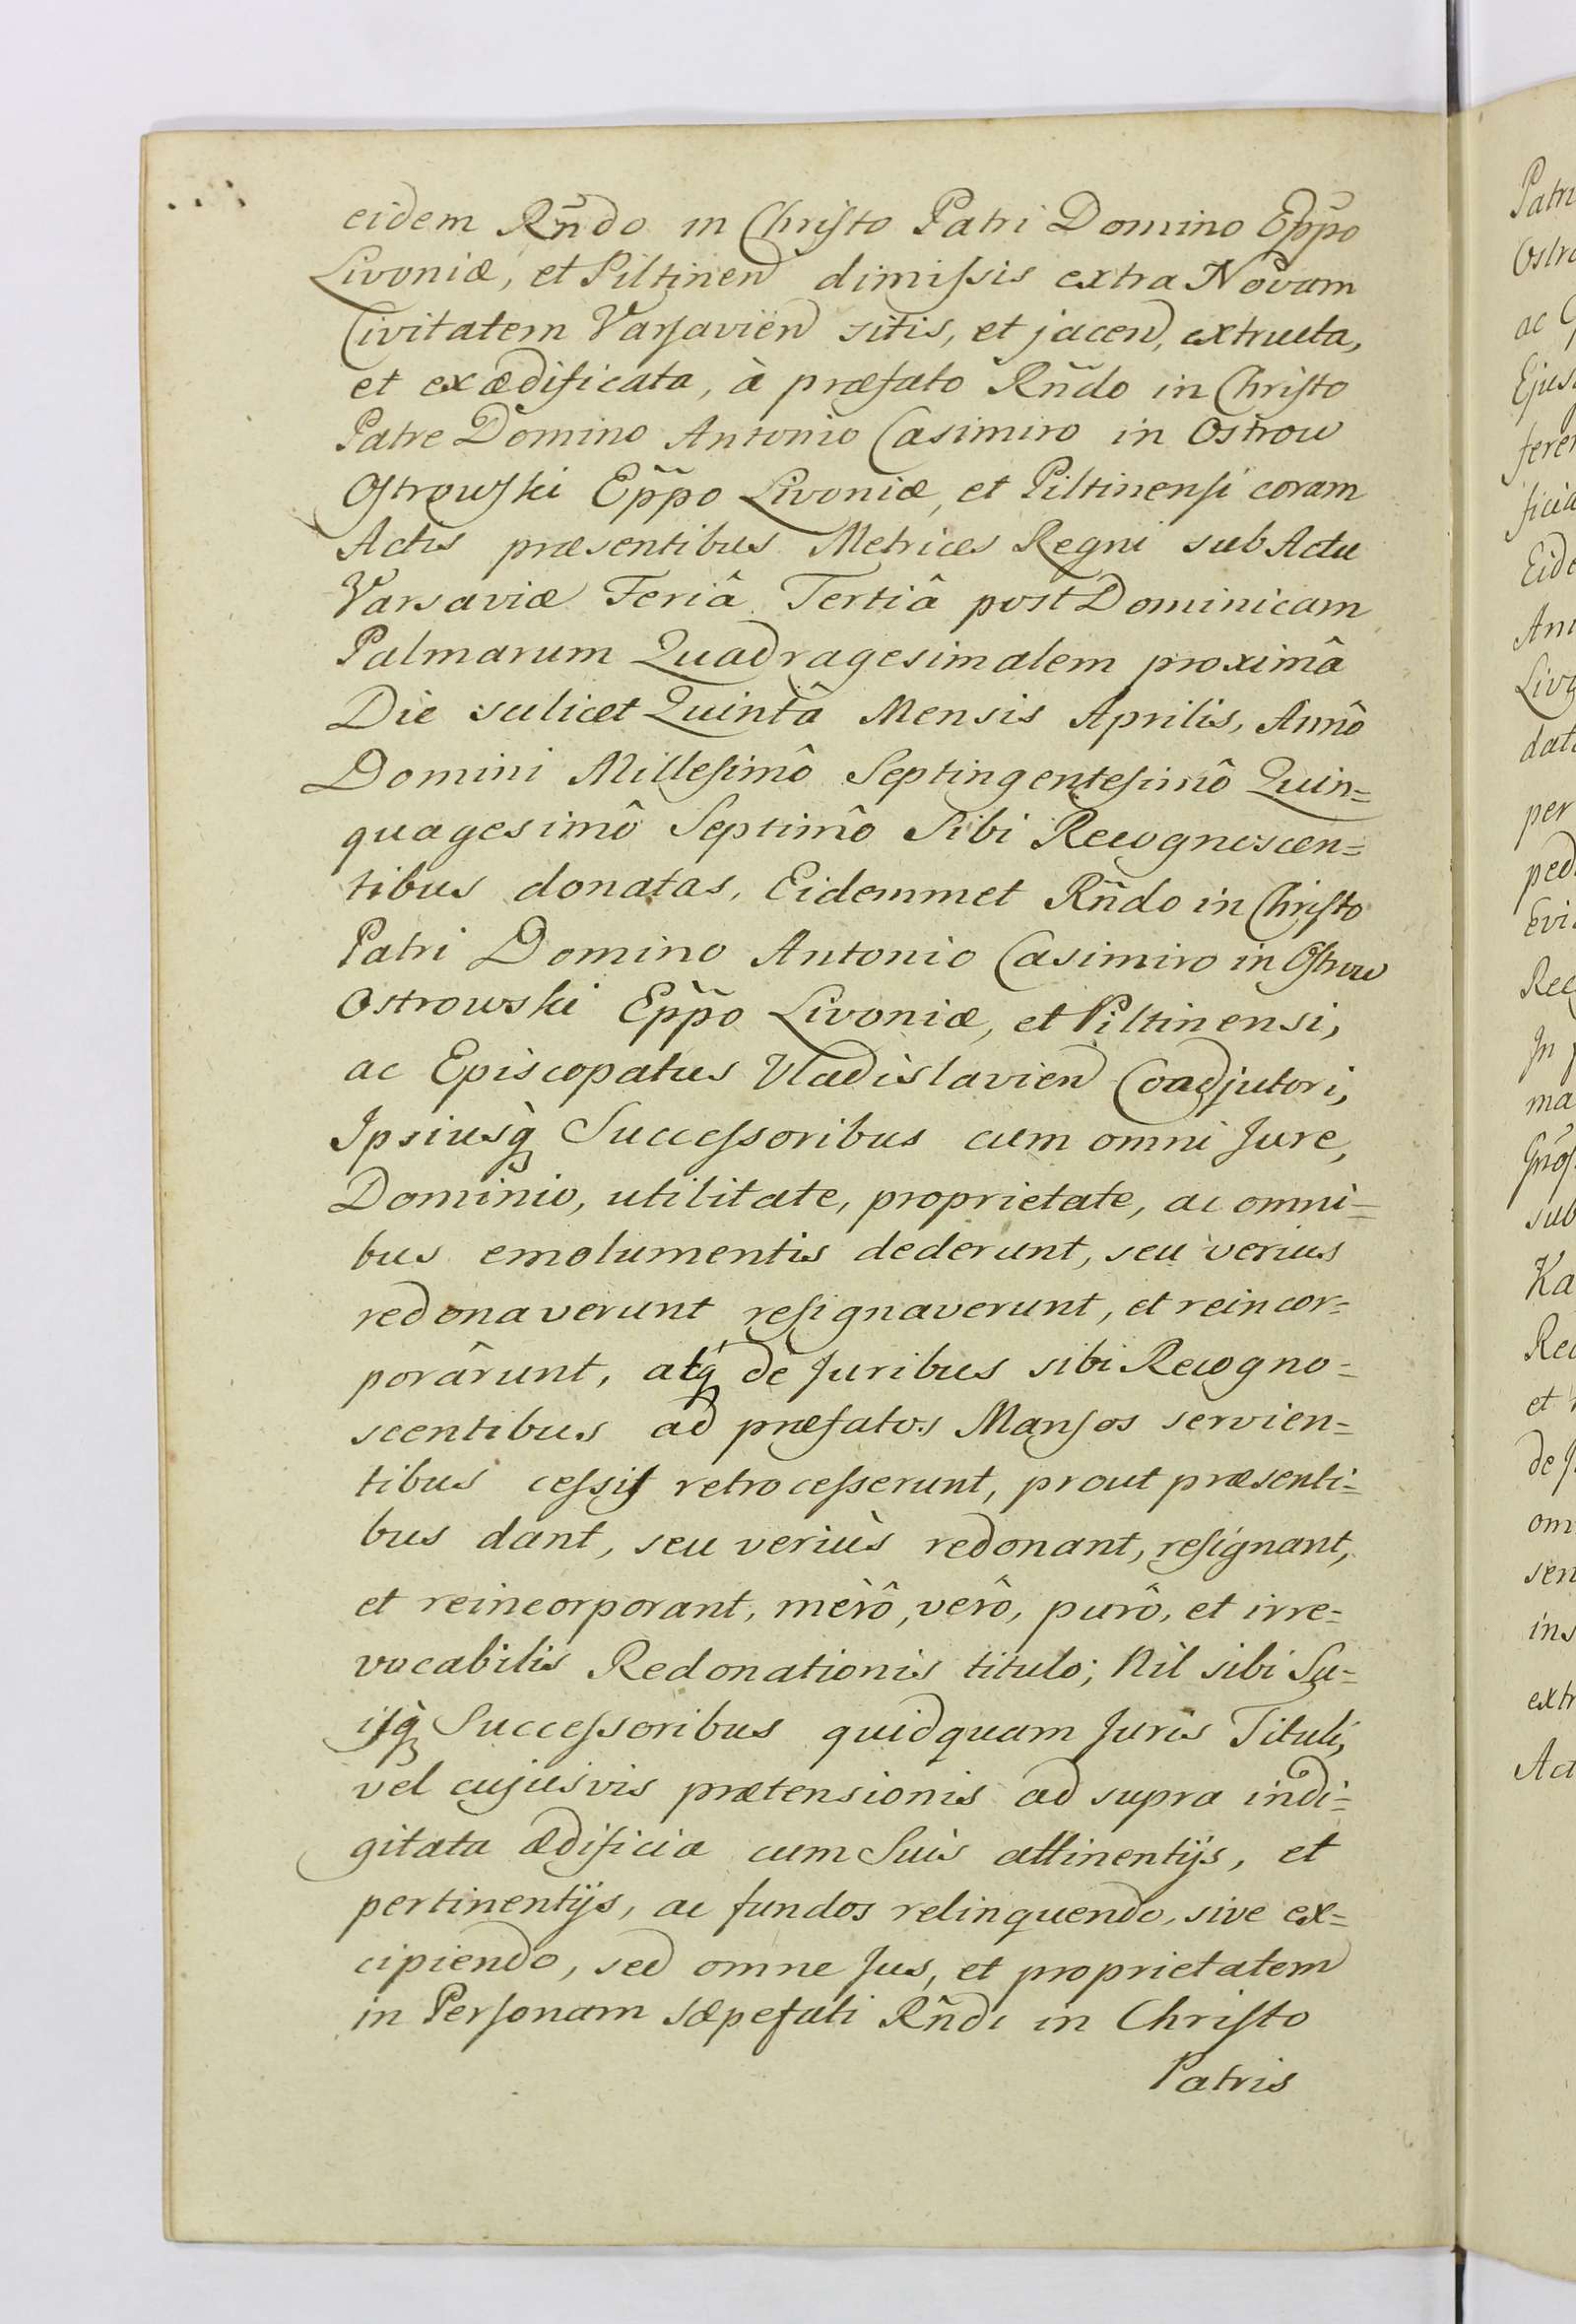 eidem Rñdo in Christo Patri Domino Epp̃o
Livoniæ, et Piltinen dimissis extra Novam
Civitatem Varsavien sitis, et jacen, extructa,
et exædificata, à præfato Rñdo in Christo
Patre Domino Antonio Casimiro in Ostrow
Ostrowski Epp̃o Livoniæ, et Piltinensi coram
Actis præsentibus Metrices Regni sub Actu
Varsaviæ Feriâ Tertiâ post Dominicam
Palmarum Quadragesimalem proximâ
Die scilicet Quintâ Mensis Aprilis, Annô
Domini Millesimô Septingentesimô Quin=
quagesimô Septimô Sibi Recognoscen=
tibus donatas, Eidemmet Rñdo in Christo
Patri Domino Antonio Casimiro in Ostrow
Ostrowski Epp̃o Livoniæ, et Piltinensi,
ac Episcopatus Vladislavien Coadjutori,
Ipsiusq́ Successoribus cum omni Jure,
Dominio, utilitate, proprietate, ac omni=
bus emolumentis dederunt, seu verius
redonaverunt resignaverunt, et reincor=
porârunt, atq́ de Juribus sibi Recogno=
scentibus ad præfatos Mansos servien=
tibus cessis retrocesserunt, prout præsenti=
bus dant, seu veriùs redonant, resignant,
et reincorporant, mèrô, verô, purô, et irre=
vocabilis Redonationis titulo; Nil sibi Su=
isq̀ Successoribus quidquam Juris Tituli,
vel cujusvis prætensionis ad supra indi=
gitata ædificia cum Suis attinentijs, et
pertinentijs, ac fundos relinquendo, sive ex=
cipiendo, sed omne Jus, et proprietatem
in Personam sæpefati Rñdi in Christo
Patris